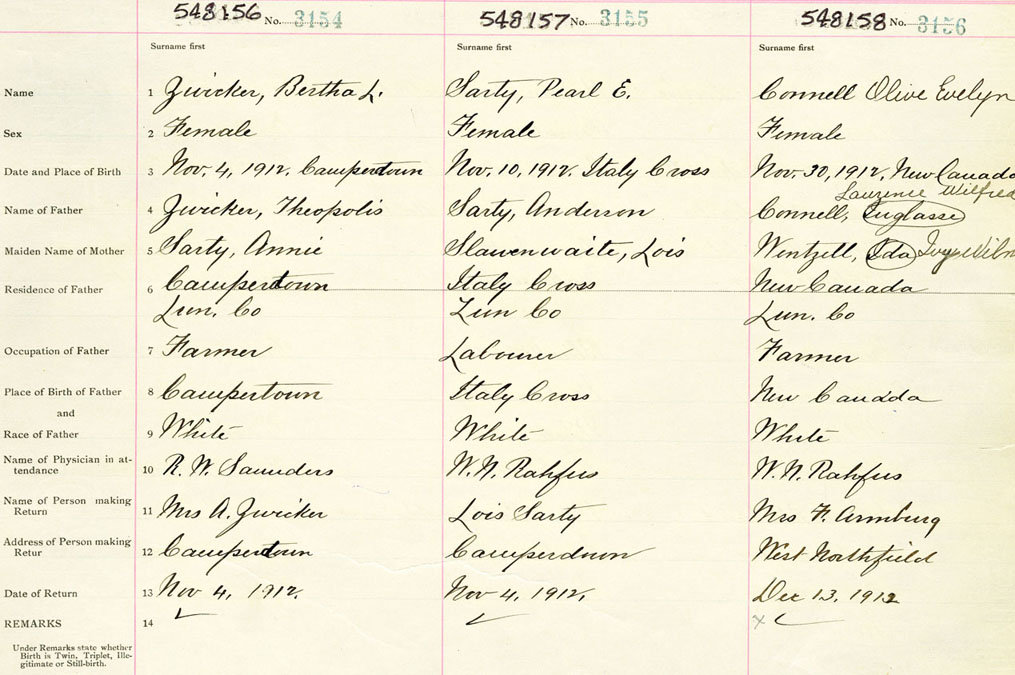 548156 No. 3154 548157 No. 3155 548158 No. 3156
Surname first Surname first Surname first
Name 1 Zwicker, Bertha L. Sarty, Pearl E. Connell Olive Evelyn
Sex 2 Female Female Female
Date and Place of Birth 3 Nov. 4, 1912. Campertown Nov. 10, 1912. Italy Cross Nov. 30, 1912, New Canada
Wilfred
Name of Father 4 Zwicker, Theopolis Sarty, Anderson Connell,
Maiden Name of Mother 5 Sarty, Annie Slauenwaite, Lois Wentzell, Ida
Residence of Father 6 Campertown Italy Cross New Canada
Lun. Co Lun Co Lun. Co
Occupation of Father 7 Farmer Labourer Farmer
Place of Birth of Father 8 Campertown Italy Cross New Canada
and
Race of Father 9 White White White
Name of Physician in at-
tendance 10 R. W. Saunders W. N. Rahfus W. N. Rahfus
Name of Person making
Return 11 Mrs A. Zwicker Lois Sarty Mrs F. Armburg
Address of Person making
Retur 12 Campertown Camperdown West Northfield
Date of Return 13 Nov 4, 1912. Nov 4, 1912, Dec 13, 1912
REMARKS 14
Under Remarks state whether
Birth is Twin, Triplet, Ille-
gitimate or Still-birth.